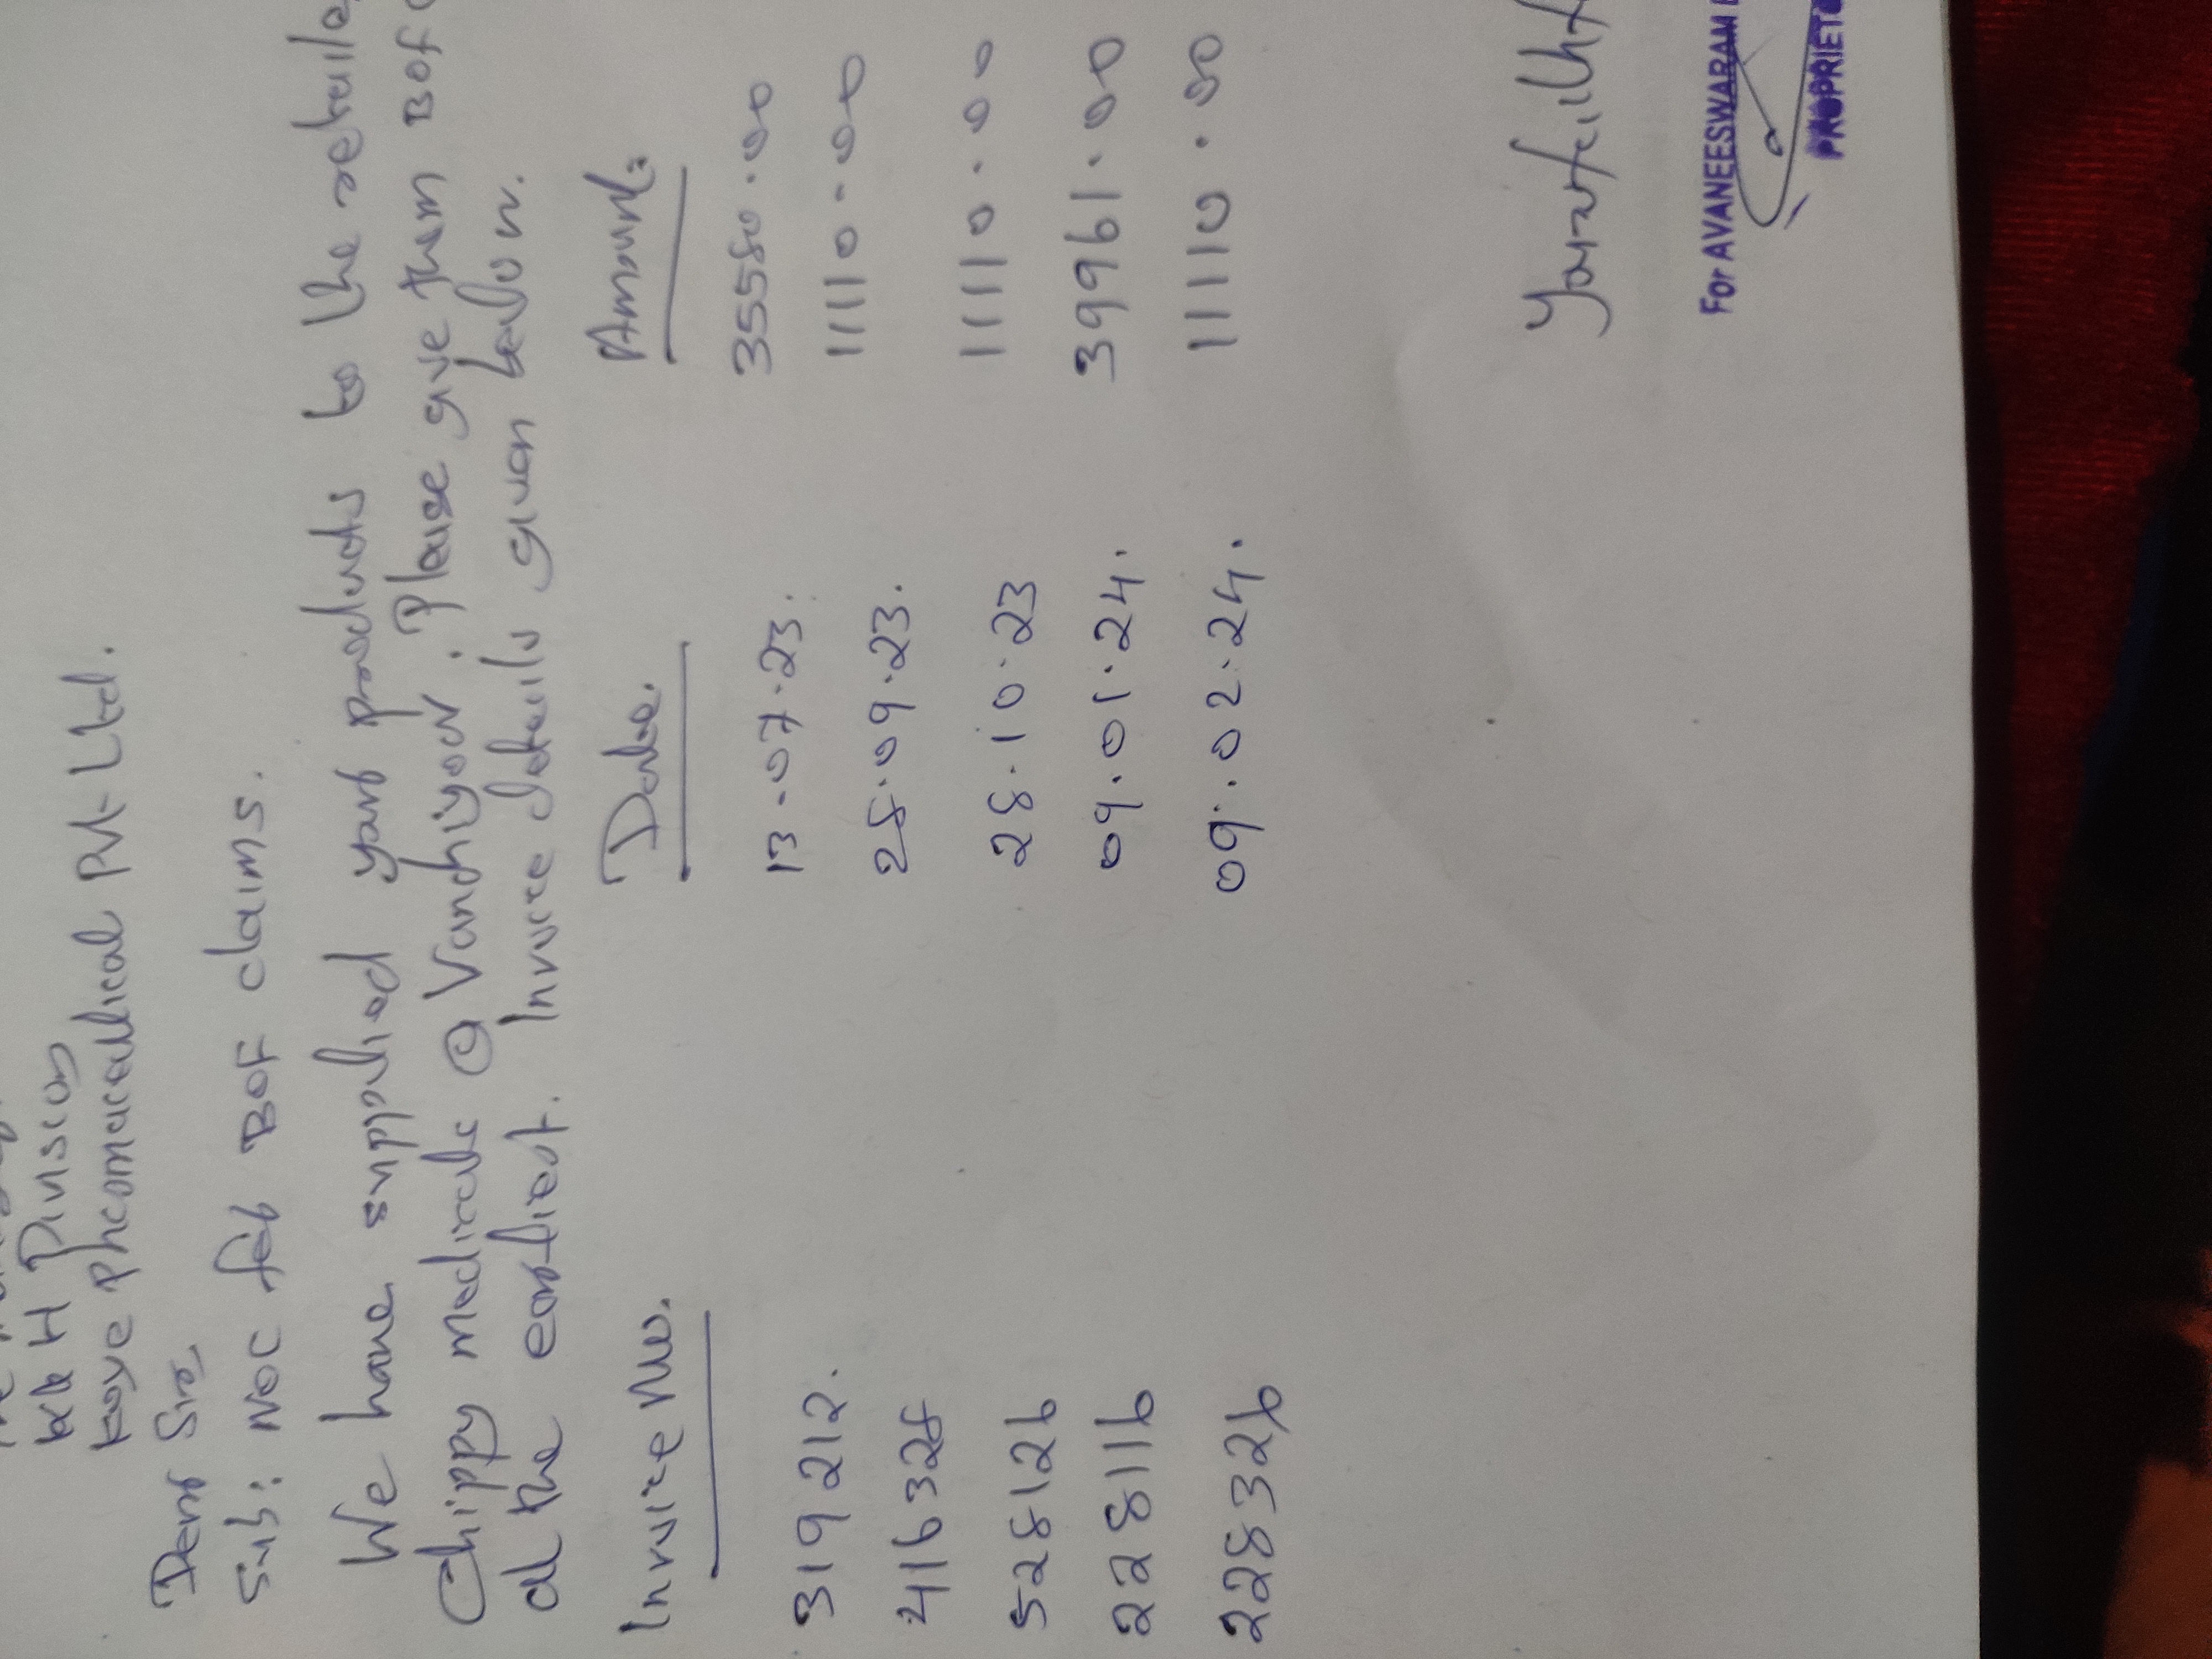 K&H Division
Kaye Pharmaceutical Pvt Ltd.
Dear Sir
Sub: NOC for BOF claims.
We have supplied your products to the
Chippy medicals @ Vanchiyoor. Please give them BOF
at the earliest. Invoice details given below.
Invoice No. Date. Amount:
319212. 13-07-23: 35580.00
416328 28.09.23. 11110-00
528126 28.10.23 11110.00
228116 09.01.24. 39961.00
228326 09.02.24. 11110.00
For AVANEESWARAM